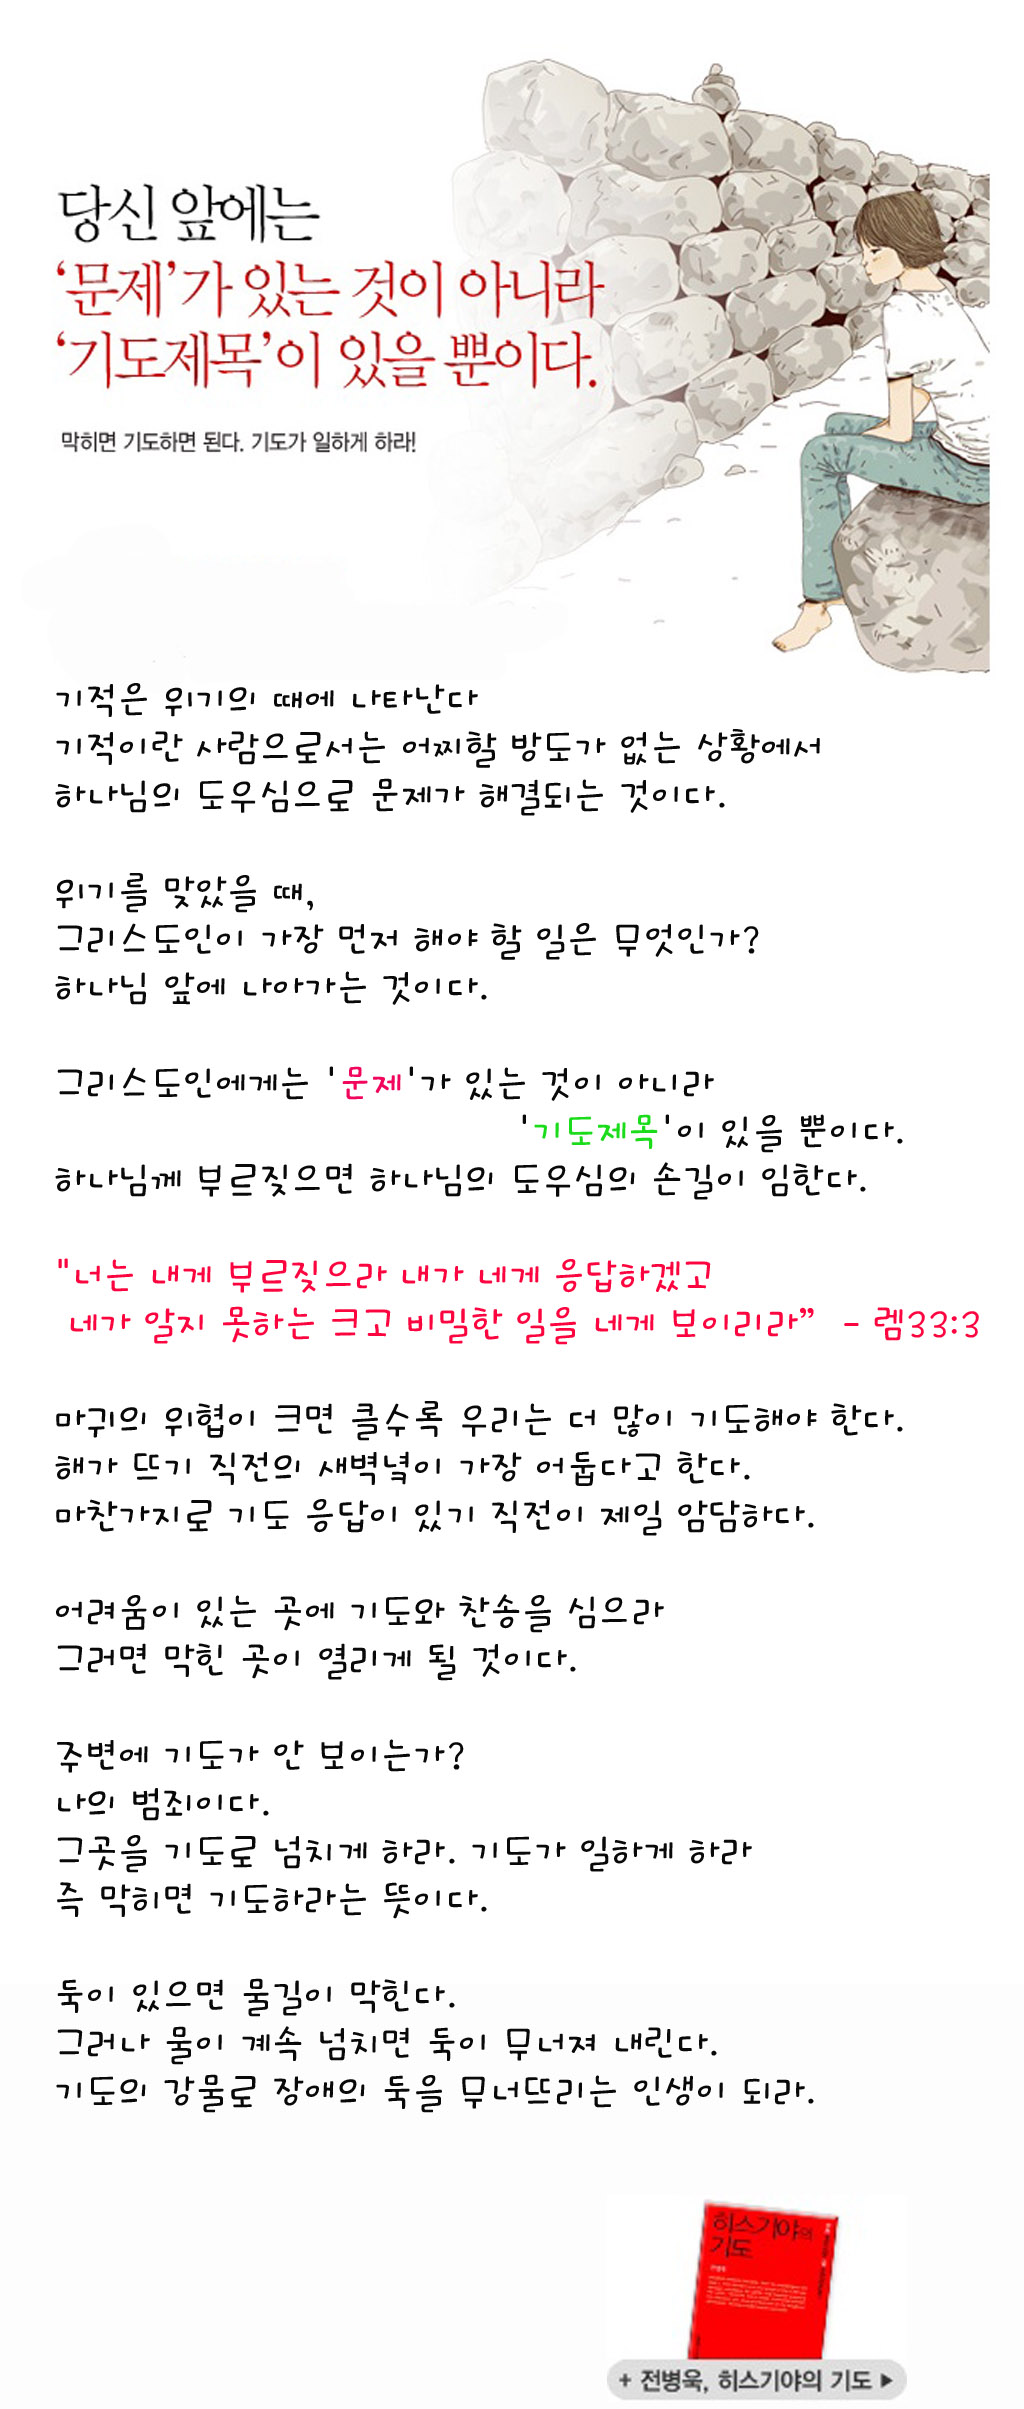 당신 앞에는
‘문제’가 있는 것이 아니라
‘기도제목’이 있을 뿐이다.
막히면 기도하면 된다. 기도가 일하게 하라!
기적은 위기의 때에 나타난다
기적이란 사람으로서는 어찌할 방도가 없는 상황에서
하나님의 도우심으로 문제가 해결되는 것이다.
위기를 맞았을 때,
그리스도인이 가장 먼저 해야 할 일은 무엇인가?
하나님 앞에 나아가는 것이다.
그리스도인에게는 '문제'가 있는 것이 아니라
'기도제목'이 있을 뿐이다.
하나님께 부르짖으면 하나님의 도우심의 손길이 임한다.
"너는 내게 부르짖으라 내가 네게 응답하겠고
네가 알지 못하는 크고 비밀한 일을 네게 보이리라” - 렘33:3
마귀의 위협이 크면 클수록 우리는 더 많이 기도해야 한다.
해가 뜨기 직전의 새벽녘이 가장 어둡다고 한다.
마찬가지로 기도 응답이 있기 직전이 제일 암담하다.
어려움이 있는 곳에 기도와 찬송을 심으라
그러면 막힌 곳이 열리게 될 것이다.
주변에 기도가 안 보이는가?
나의 범죄이다.
그곳을 기도로 넘치게 하라. 기도가 일하게 하라
즉 막히면 기도하라는 뜻이다.
둑이 있으면 물길이 막힌다.
그러나 물이 계속 넘치면 둑이 무너져 내린다.
기도의 강물로 장애의 둑을 무너뜨리는 인생이 되라.
히스기야의
기도
+ 전병욱, 히스기야의 기도 ▶